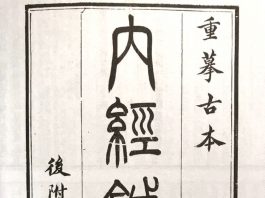 重摹古本
內經
後附